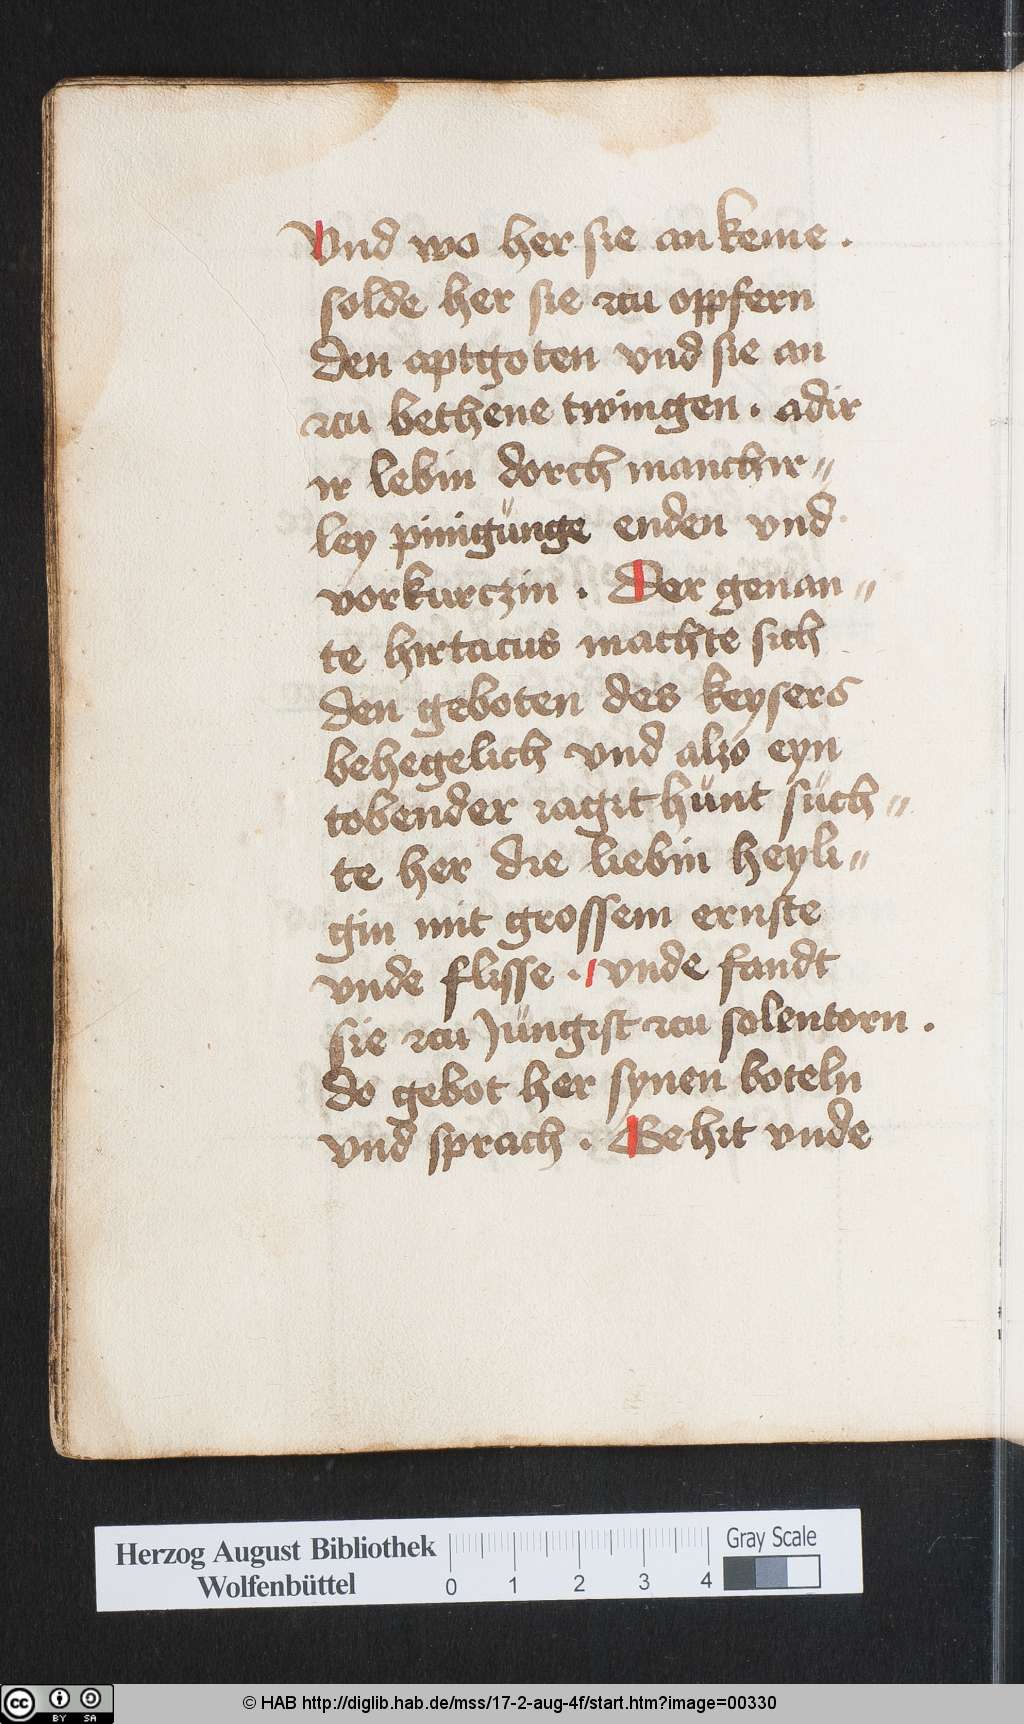 Vnd wo her sie an keme .
solde her sie zcu oppfern
den aptgoten vnd sie an
zcu bethene twingen . adir
ir lebin dorch manchir=
ley pinigünge enden vnd
vorkurczin . Der genan=
te hirtacus machte sich
den geboten des keysers
behegelich vnd alzo eyn
tobender iagit hünt süch=
te her die liebin heyli=
gin mit grossem ernste
vnde flisse . vnde fandt
sie zcu Jüngist zcu solentorn .
do gebot her synen boteln
vnd sprach . Gehit vnde
Herzog August Bibliothek
Wolfenbüttel
0 1 2 3 4
Gray Scale
cc BY SA
© HAB http://diglib.hab.de/mss/17-2-aug-4f/start.htm?image=00330